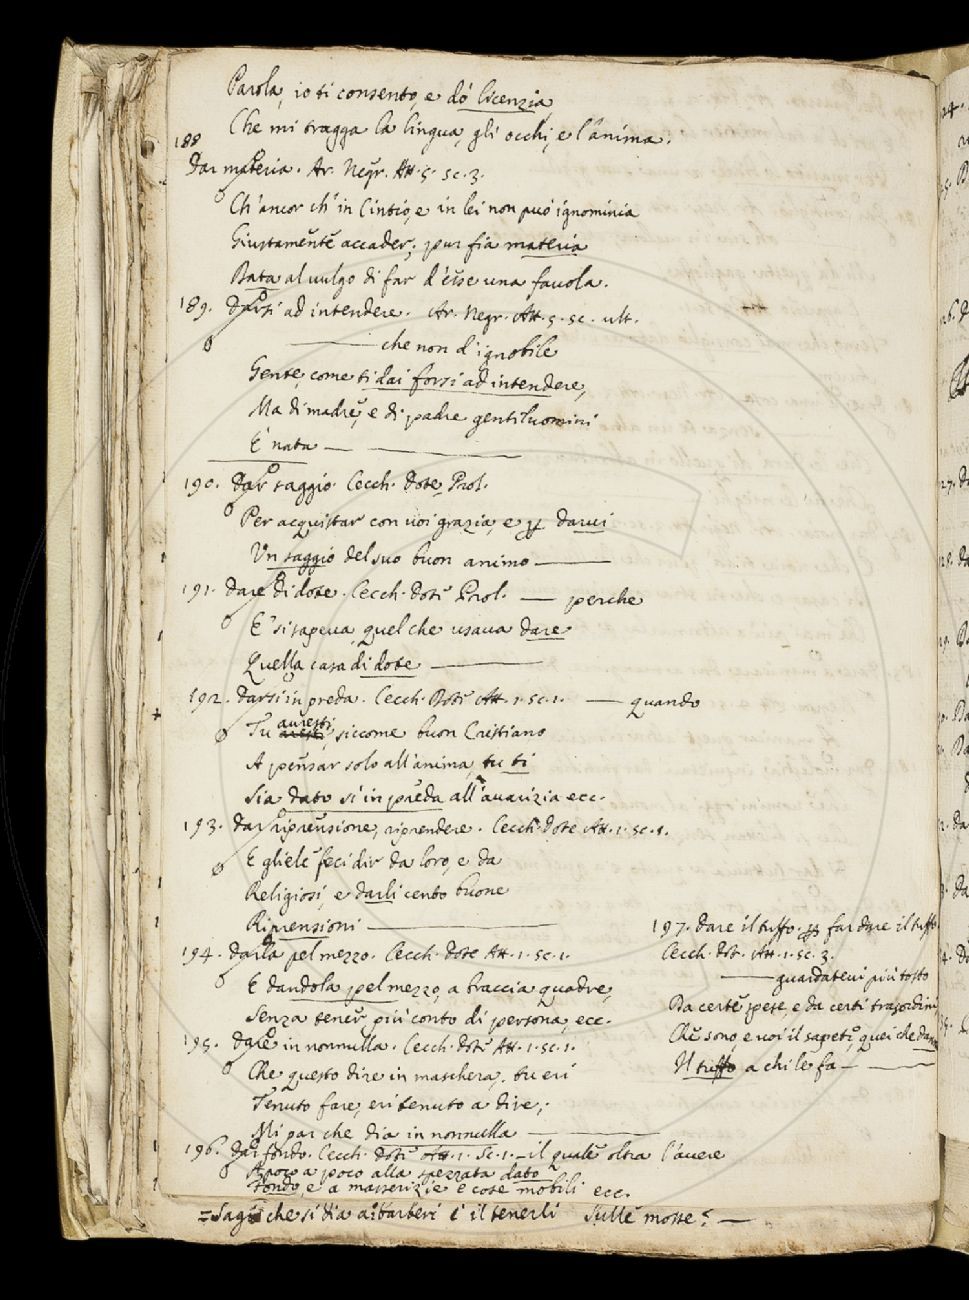 Parola, io ti consento, e dó licenzia
Che mi tragga la lingua, gli occhi, e l'anima.
188
Dar materia. Ar. Negr. Att. 5. sc. 3.
Ch'ancor ch'in Cintio, e in lei non può ignominia
Giustamente accader; pur fia materia
Data al vulgo di far d'esse una favola.
189. Darsi ad intendere. Ar. Negr. Att. 5. sc. ult.
che non d'ignobile
Gente, come ti dai forsi ad intendere,
Ma di madre, e di padre gentiluomini
E' nata
190. Dar saggio. Cecch. Dote, Prol.
Per acquistar con voi grazia, e p darvi
Un saggio del suo buon animo
191. dare di dote. Cecch. Dote Prol. — perche
E' si sapeva, quel che usava dare
Quella casa di dote
192. Darsi in preda. Cecch. Dote Att. 1. sc. 1. — quando
Tu avresti, siccome buon Cristiano
A pensar solo all'anima, tu ti
Sia dato sì in preda all'avarizia ecc.
193. dar riprensione, riprendere. Cecch. Dote Att. 1. sc. 1.
E gliele feci dir da loro, e da
Religiosi, e darli cento buone
Riprensioni
194. darla pel mezzo. Cecch. Dote Att. 1. sc. 1.
E dandola pel mezzo, a braccia quadre,
Senza tener più conto di persona, ecc.
195. dare in nonnulla. Cecch. Dote Att. 1. sc. 1.
Che questo dire in maschera, tu eri
Tenuto fare, eri tenuto a dire;
Mi par che dia in nonnulla
196. dar fondo. Cecch. Dote Att. 1. Sc. 1. — il quale oltra l'avere
A poco a poco alla spezzata dato
Fondo, e a masserizie e cose mobili ecc.
= che si dia a' barberi è il tenerli sulle mosse? —
197. dare il tuffo. p far dare il tuffo.
Cecch. Dot. Att. 1. sc. 3.
guardatevi più tosto
Da certe spese, e da certi trasordini
Che sono, e voi il sapete, quei che danno
Il tuffo a chi le fa